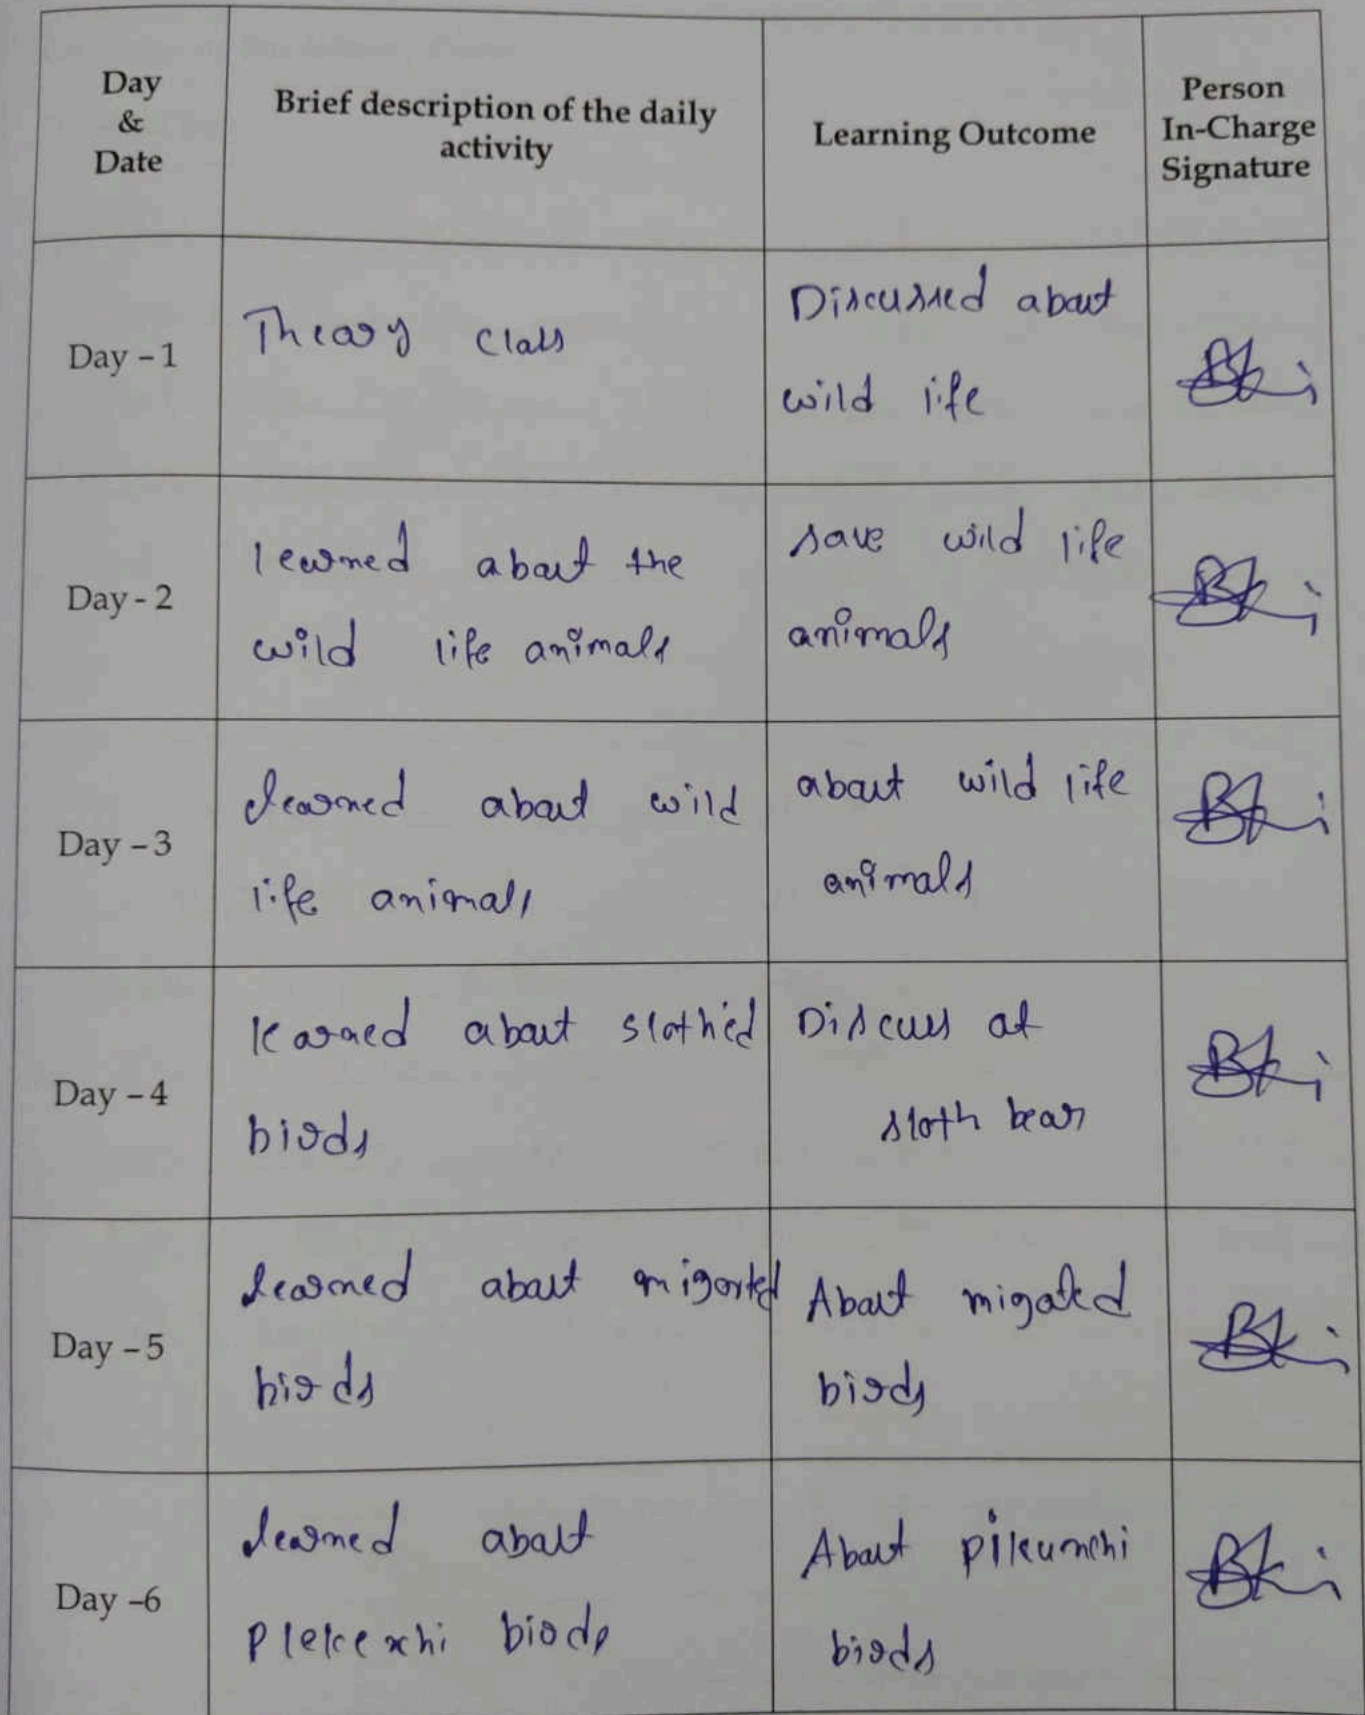 Day
&
Date
Brief description of the daily
activity
Learning Outcome
Person
In-Charge
Signature
Day - 1
Theory class
Discussed about
wild life
Day - 2
learned about the
wild life animals
save wild life
animals
Day - 3
learned about wild
life animals
about wild life
animals
Day - 4
learned about slothed
birds
Discuss at
sloth bear
Day - 5
learned about migorted
birds
About migated
birds
Day -6
learned about
birds
About pikunchi
birds